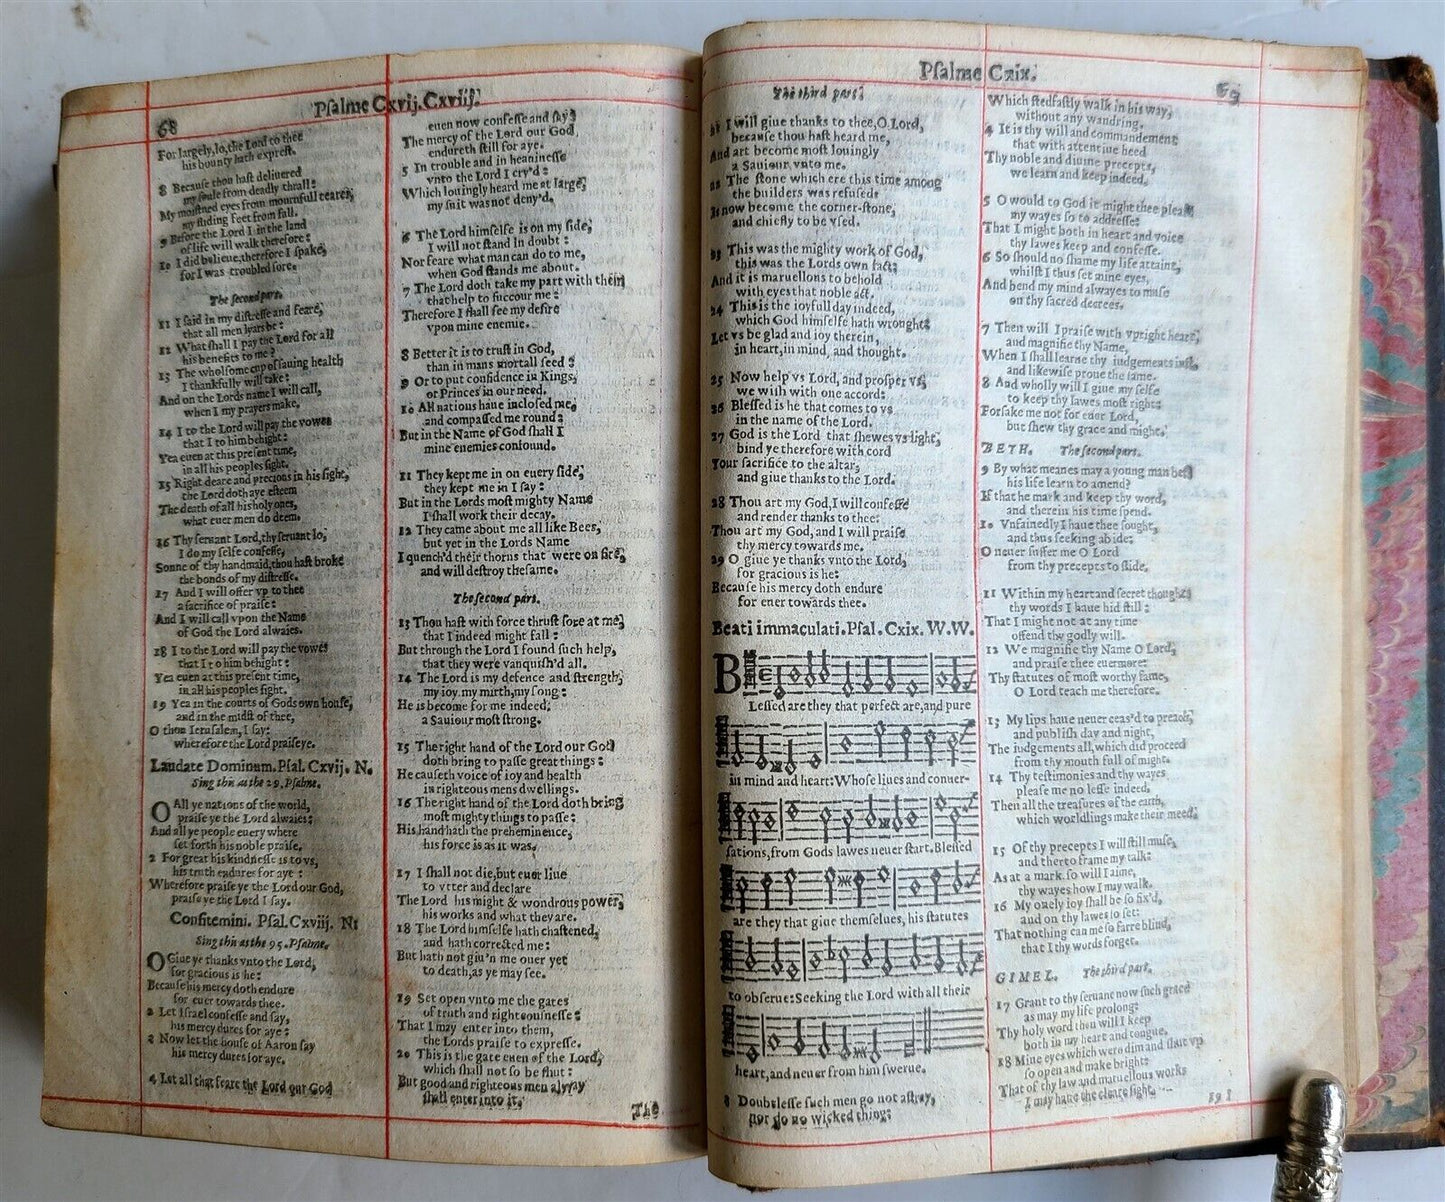 68
Psalme Cxvij.Cxviij.
For largely, lo, the Lord to thee
his bounty hath exprest.
8 Because thou hast delivered
my soule from deadly thrall:
My moistned eyes from mournfull teares,
my sliding feet from fall.
9 Before the Lord I in the land
of life will walk therefore:
10 I did believe, therefore I spake,
for I was troubled sore.
The second part.
11 I said in my distresse and feare,
that all men lyars be:
12 What shall I pay the Lord for all
his benefits to me?
13 The wholsome cup of saving health
I thankfully will take:
And on the Lords name I will call,
when I my prayers make.
14 I to the Lord will pay the vowes
that I to him behight:
Yea euen at this present time,
in all his peoples sight.
15 Right deare and precious in his sight,
the Lord doth aye esteem
The death of all his holy ones,
what euer men do deem.
16 Thy seruant Lord, thy seruant lo,
I do my selfe confesse,
Sonne of thy handmaid, thou hast broke
the bonds of my distresse.
17 And I will offer vp to thee
a sacrifice of praise:
And I will call vpon the Name
of God the Lord alwaies.
18 I to the Lord will pay the vowes
that I to him behight:
Yea euen at this present time,
in all his peoples sight.
19 Yea in the courts of Gods own house,
and in the midst of thee,
O thou Ierusalem, I say:
wherefore the Lord praise ye.
Laudate Dominum. Psal. Cxvij. N.
Sing this as the 29. Psalme.
O All ye nations of the world,
praise ye the Lord alwaies:
And all ye people euery where
set forth his noble praise.
2 For great his kindnesse is to vs,
his truth endures for aye:
Wherefore praise ye the Lord our God,
praise ye the Lord I say.
Confitemini. Psal. Cxviij. N:
Sing this as the 95. Psalme.
O Giue ye thanks vnto the Lord,
for gracious is he:
Because his mercy doth endure
for euer towards thee.
2 Let Israel confesse and say,
his mercy dures for aye:
3 Now let the house of Aaron say
his mercy dures for aye.
4 Let all that feare the Lord our God
euen now confesse and say,
The mercy of the Lord our God
endureth still for aye.
5 In trouble and in heauinesse
vnto the Lord I cry'd:
Which louingly heard me at large,
my suit was not deny'd.
6 The Lord himselfe is on my side,
I will not stand in doubt:
Nor feare what man can do to me,
when God stands me about.
7 The Lord doth take my part with them
that help to succour me:
Therefore I shall see my desire
vpon mine enemie.
8 Better it is to trust in God,
than in mans mortall seed:
9 Or to put confidence in Kings,
or Princes in our need.
10 All nations haue inclosed me,
and compassed me round:
But in the Name of God shall I
mine enemies confound.
11 They kept me in on euery side,
they kept me in I say:
But in the Lords most mighty Name
I shall work their decay.
12 They came about me all like Bees,
but yet in the Lords Name
I quench'd their thorns that were on fire,
and will destroy the same.
The second part.
13 Thou hast with force thrust sore at me,
that I indeed might fall:
But through the Lord I found such help,
that they were vanquish'd all.
14 The Lord is my defence and strength,
my ioy, my mirth, my song:
He is become for me indeed,
a Sauiour most strong.
15 The right hand of the Lord our God
doth bring to passe great things:
He causeth voice of ioy and health
in righteous mens dwellings.
16 The right hand of the Lord doth bring
most mighty things to passe:
His hand hath the preheminence,
his force is as it was.
17 I shall not die, but euer liue
to vtter and declare
The Lord his might & wondrous power,
his works and what they are.
18 The Lord himselfe hath chastened,
and hath corrected me:
But hath not giu'n me ouer yet
to death, as ye may see.
19 Set open vnto me the gates
of truth and righteousnesse:
That I may enter into them,
the Lords praise to expresse.
20 This is the gate euen of the Lord,
which shall not so be shut:
But good and righteous men alway
shall enter into it.
The
Psalme Cxix.
69
The third part.
21 I will giue thanks to thee, O Lord,
because thou hast heard me,
And art become most louingly
a Sauiour vnto me.
22 The stone which ere this time among
the builders was refused:
Is now become the corner-stone,
and chiefly to be vsed.
23 This was the mighty work of God,
this was the Lords own fact:
And it is maruellous to behold
with eyes that noble act.
24 This is the ioyfull day indeed,
which God himselfe hath wrought:
Let vs be glad and ioy therein,
in heart, in mind, and thought.
25 Now help vs Lord, and prosper vs,
we wish with one accord:
26 Blessed is he that comes to vs
in the name of the Lord.
27 God is the Lord that shewes vs light,
bind ye therefore with cord
Your sacrifice to the altar,
and giue thanks to the Lord.
28 Thou art my God, I will confesse
and render thanks to thee:
Thou art my God, and I will praise
thy mercy towards me.
29 O giue ye thanks vnto the Lord,
for gracious is he:
Because his mercy doth endure
for euer towards thee.
Beati immaculati. Psal. Cxix. W.W.
B
Lessed are they that perfect are, and pure
in mind and heart: Whose liues and conuer-
sations, from Gods lawes neuer start. Blessed
are they that giue themselues, his statutes
to obserue: Seeking the Lord with all their
heart, and neuer from him swerue.
3 Doubtlesse such men go not astray,
nor do no wicked thing:
Which stedfastly walk in his way,
without any wandring.
4 It is thy will and commandement
that with attentiue heed
Thy noble and diuine precepts,
we learn and keep indeed.
5 O would to God it might thee please
my wayes so to addresse:
That I might both in heart and voice
thy lawes keep and confesse.
6 So should no shame my life attaine,
whilst I thus set mine eyes,
And bend my mind alwayes to muse
on thy sacred decrees.
7 Then will I praise with vpright heart,
and magnifie thy Name,
When I shall learne thy iudgements iust,
and likewise proue the same.
8 And wholly will I giue my selfe
to keep thy lawes most right:
Forsake me not for euer Lord,
but shew thy grace and might.
BETH. The second part.
9 By what meanes may a young man best
his life learn to amend?
If that he mark and keep thy word,
and therein his time spend.
10 Vnfainedly I haue thee sought,
and thus seeking abide:
O neuer suffer me O Lord
from thy precepts to slide.
11 Within my heart and secret thoughts
thy words I haue hid still:
That I might not at any time
offend thy godly will.
12 We magnifie thy Name O Lord,
and praise thee euermore:
Thy statutes of most worthy fame,
O Lord teach me therefore.
13 My lips haue neuer ceas'd to preach,
and publish day and night,
The iudgements all, which did proceed
from thy mouth full of might.
14 Thy testimonies and thy wayes
please me no lesse indeed,
Then all the treasures of the earth,
which worldlings make their meed.
15 Of thy precepts I will still muse,
and thereto frame my talk:
As at a mark, so will I aime,
thy wayes how I may walk.
16 My onely ioy shall be so fix'd,
and on thy lawes so set:
That nothing can me so farre blind,
that I thy words forget.
GIMEL. The third part.
17 Grant to thy seruant now such grace
as may my life prolong:
Thy holy word then will I keep
both in my heart and tongue.
18 Mine eyes which were dim and shut vp
so open and make bright:
That of thy law and maruellous works
I may haue the cleare sight.
19 I